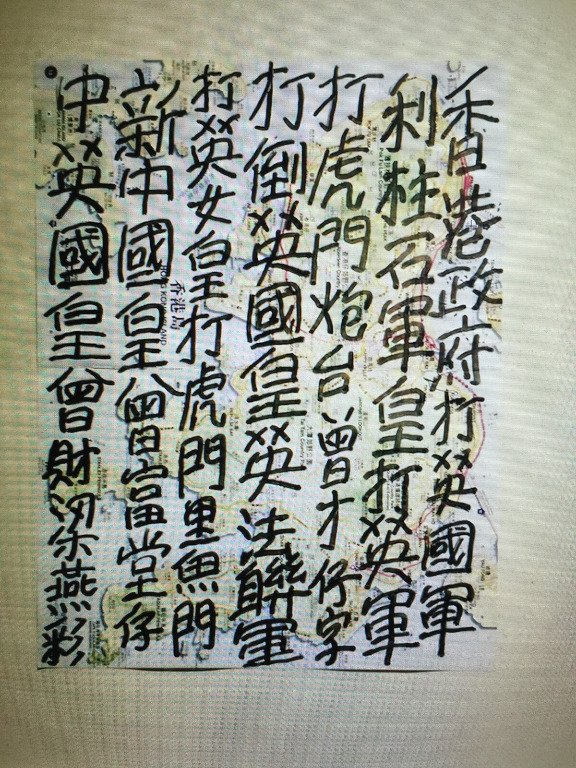 香港政府打英國軍
利柱石軍皇打英軍
打虎門炮台曾才仔字
打倒英國皇英法聯軍
打英女皇打虎門里魚門
新中國皇曾富堂仔
中英國皇曾財梁燕彩
香港島
HONG KONG ISLAND